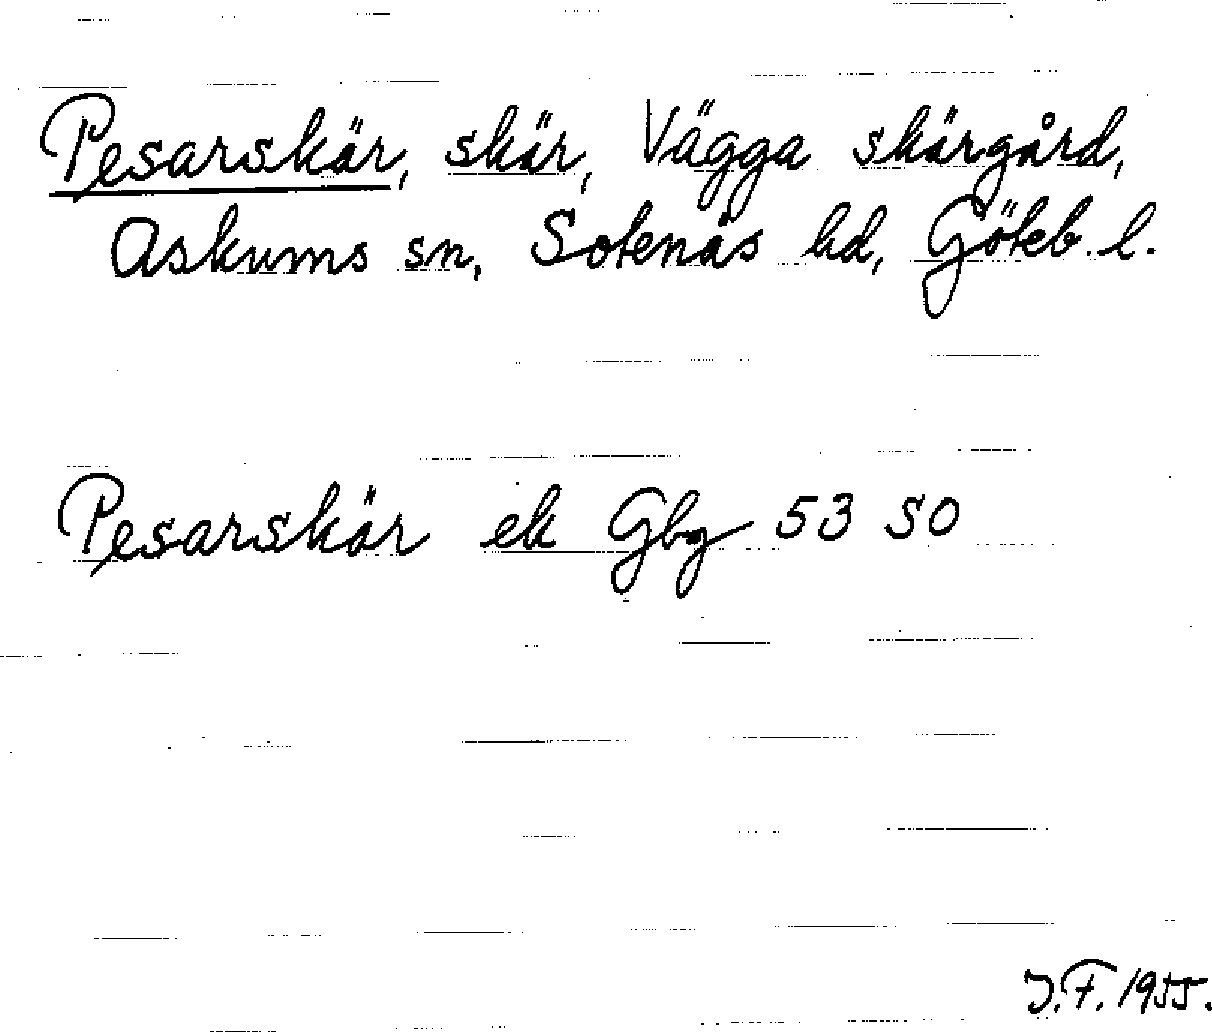 Pesarskär, skär, Vägga skärgård,
Askums sn, Sotenäs hd, Göteb. l.
Pesarskär ek Gbg 53 SO
J.F. 1955.